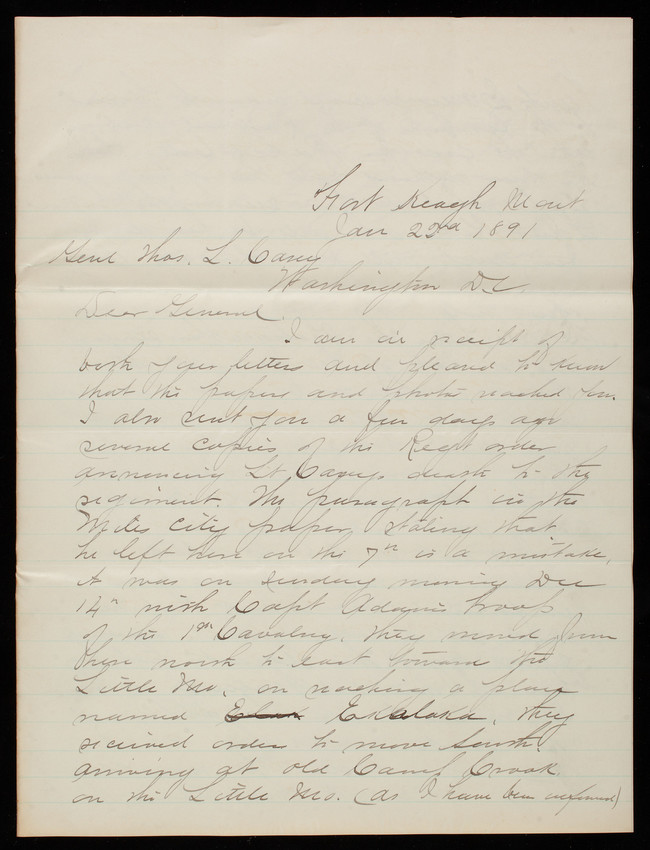 Fort Keogh Mont
Jan 22nd 1891
Genl Thos. L. Casey
Washington D.C.
Dear General.
I am in receipt of
both your letters and pleased to know
that the papers and photo reached you.
I also sent you a few days ago
several copies of the Regt order
announcing Lt Caseys death to the
regiment. The paragraph in the
Miles City paper stating that
he left here on the 7th is a mistake,
it was on Sunday morning Dec
14th with Capt Adams troop
of the 1st Cavalry. They moved from
here north to east toward the
Little Mo. on reaching a place
named Ekalaka, they
received orders to move South.
arriving at old Camp Crook
on the Little Mo. (as I have been informed)